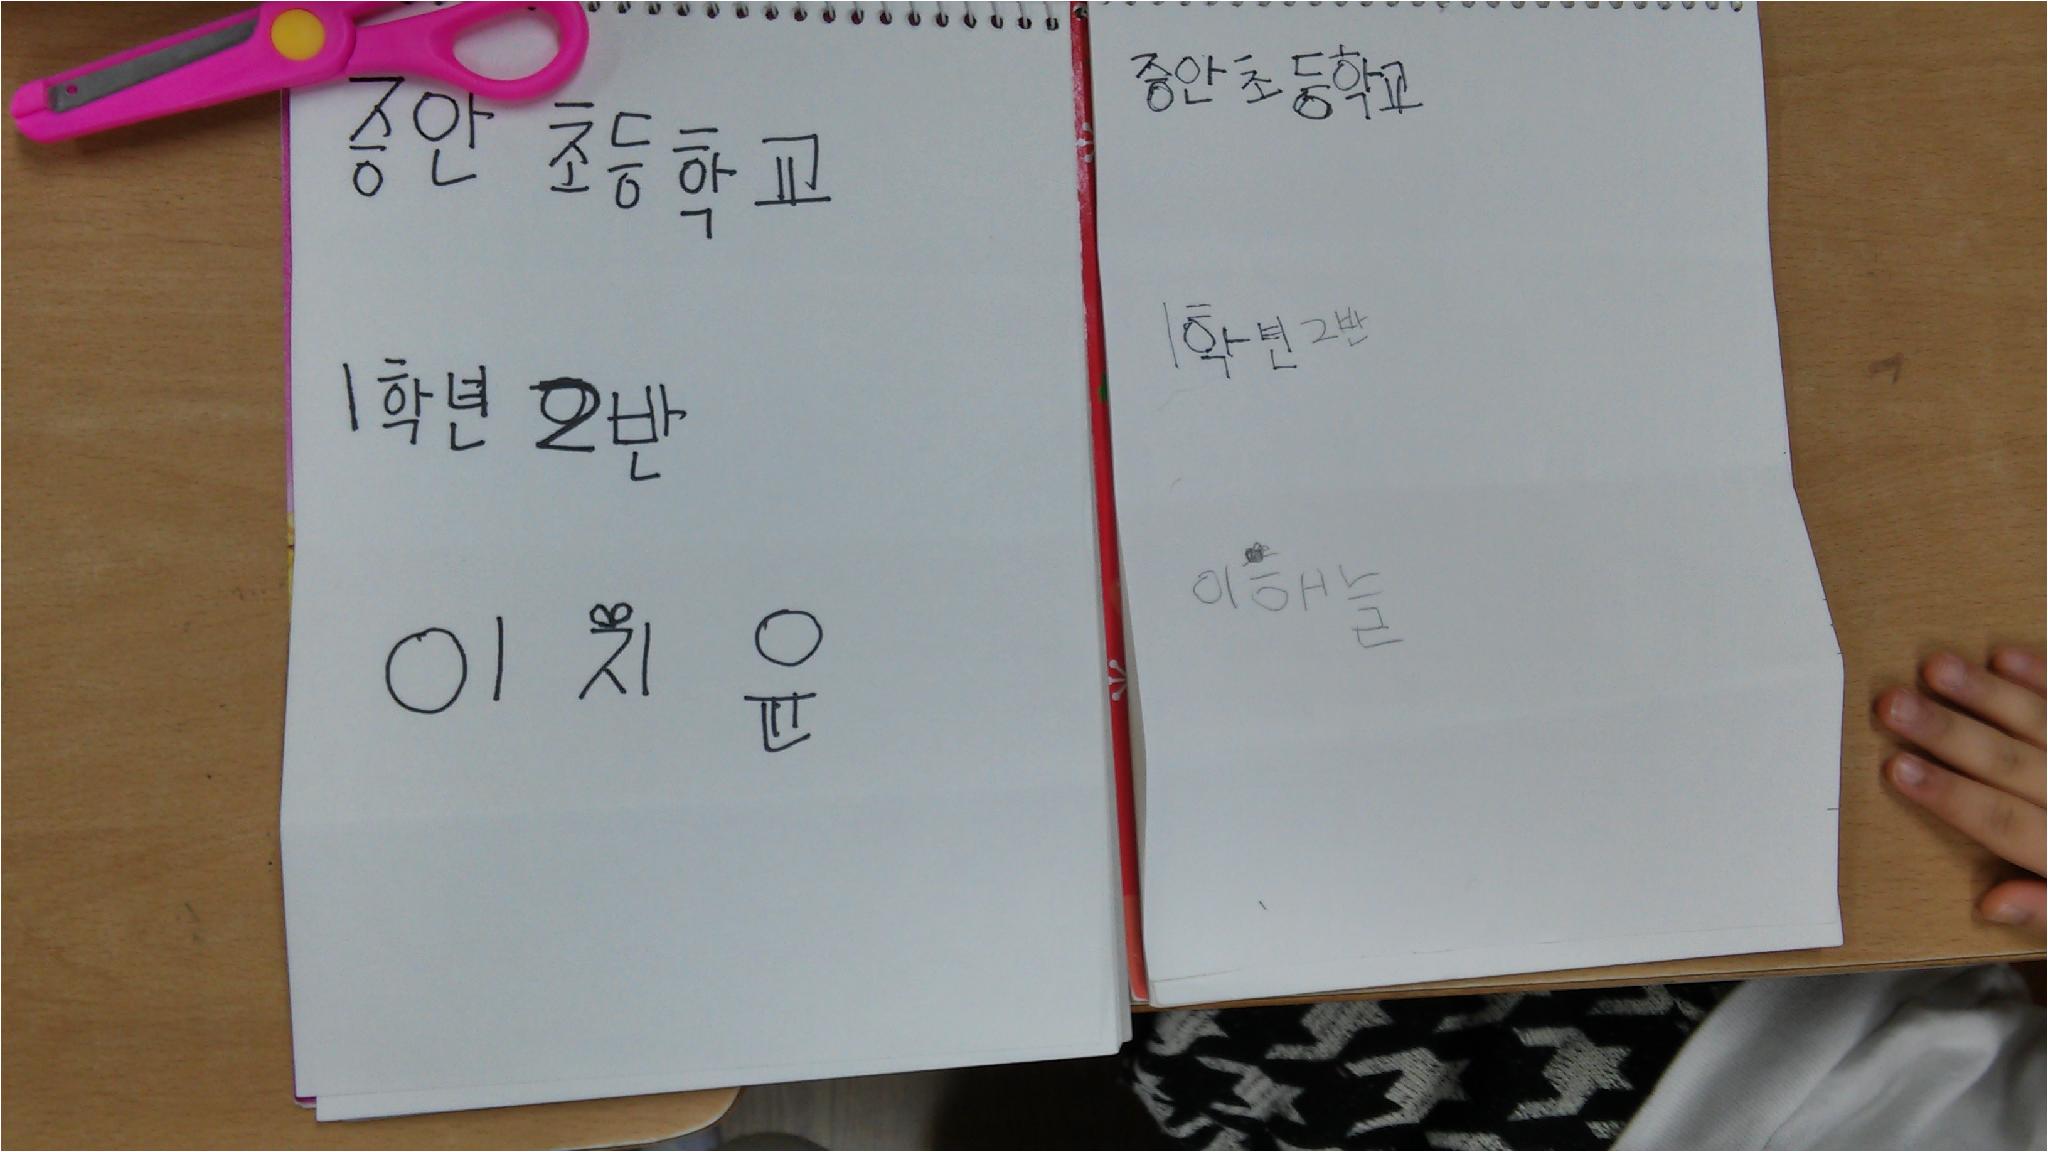 증안 초등학교
1학년 2반
이지윤
증안초등학교
1학년 2반
이해늘